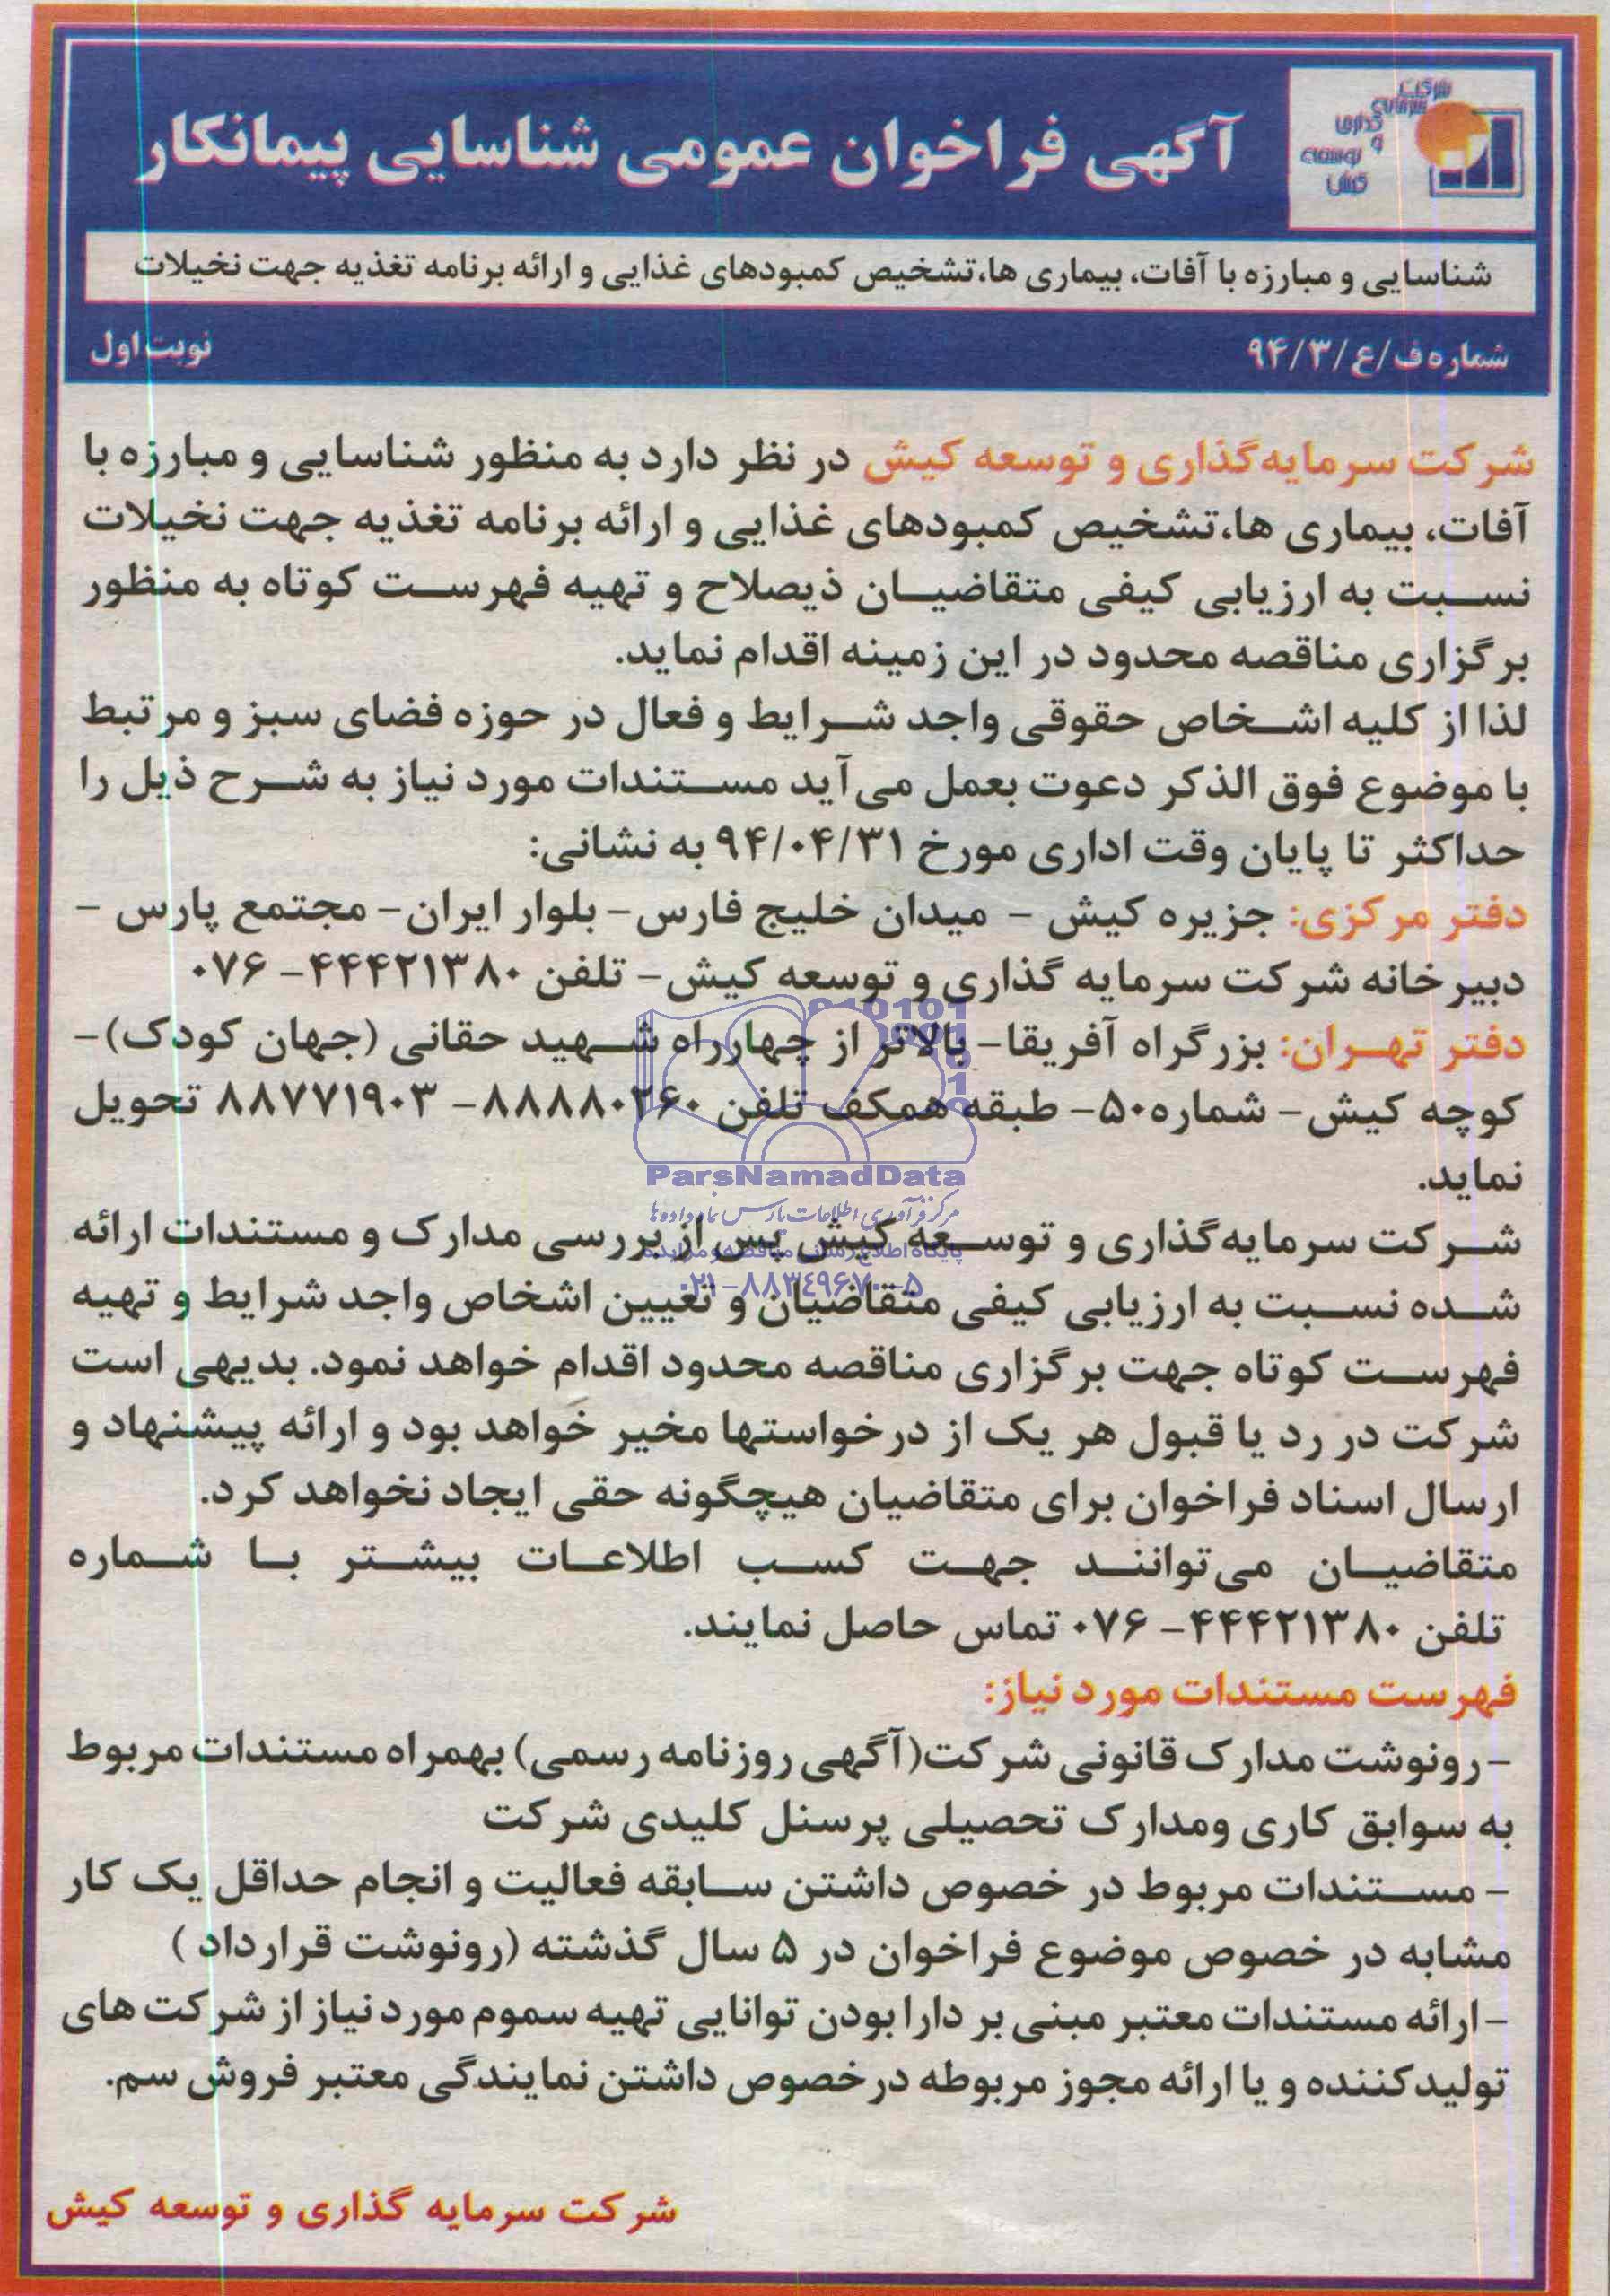 شرکت
سرمایه
گذاری
و توسعه
کیش
آگهی فراخوان عمومی شناسایی پیمانکار
شناسایی و مبارزه با آفات، بیماری ها،تشخیص کمبودهای غذایی و ارائه برنامه تغذیه جهت نخیلات
شماره ف/ع/۹۴/۳
نوبت اول
شرکت سرمایه‌گذاری و توسعه کیش در نظر دارد به منظور شناسایی و مبارزه با
آفات، بیماری ها،تشخیص کمبودهای غذایی و ارائه برنامه تغذیه جهت نخیلات
نسبت به ارزیابی کیفی متقاضیان ذیصلاح و تهیه فهرست کوتاه به منظور
برگزاری مناقصه محدود در این زمینه اقدام نماید.
لذا از کلیه اشخاص حقوقی واجد شرایط و فعال در حوزه فضای سبز و مرتبط
با موضوع فوق الذکر دعوت بعمل می‌آید مستندات مورد نیاز به شرح ذیل را
حداکثر تا پایان وقت اداری مورخ ۹۴/۰۴/۳۱ به نشانی:
دفتر مرکزی: جزیره کیش - میدان خلیج فارس- بلوار ایران- مجتمع پارس -
دبیرخانه شرکت سرمایه گذاری و توسعه کیش- تلفن ۴۴۴۲۱۳۸۰- ۰۷۶
دفتر تهران: بزرگراه آفریقا- بالاتر از چهارراه شهید حقانی (جهان کودک)-
کوچه کیش- شماره۵۰- طبقه همکف تلفن ۸۸۸۸۰۲۶۰- ۸۸۷۷۱۹۰۳ تحویل
نماید.
شرکت سرمایه‌گذاری و توسعه کیش پس از بررسی مدارک و مستندات ارائه
شده نسبت به ارزیابی کیفی متقاضیان و تعیین اشخاص واجد شرایط و تهیه
فهرست کوتاه جهت برگزاری مناقصه محدود اقدام خواهد نمود. بدیهی است
شرکت در رد یا قبول هر یک از درخواستها مخیر خواهد بود و ارائه پیشنهاد و
ارسال اسناد فراخوان برای متقاضیان هیچگونه حقی ایجاد نخواهد کرد.
متقاضیان می‌توانند جهت کسب اطلاعات بیشتر با شماره
تلفن ۴۴۴۲۱۳۸۰- ۰۷۶ تماس حاصل نمایند.
فهرست مستندات مورد نیاز:
- رونوشت مدارک قانونی شرکت(آگهی روزنامه رسمی) بهمراه مستندات مربوط
به سوابق کاری ومدارک تحصیلی پرسنل کلیدی شرکت
- مستندات مربوط در خصوص داشتن سابقه فعالیت و انجام حداقل یک کار
مشابه در خصوص موضوع فراخوان در ۵ سال گذشته (رونوشت قرارداد )
- ارائه مستندات معتبر مبنی بر دارا بودن توانایی تهیه سموم مورد نیاز از شرکت های
تولیدکننده و یا ارائه مجوز مربوطه درخصوص داشتن نمایندگی معتبر فروش سم.
شرکت سرمایه گذاری و توسعه کیش
ParsNamadData
مرکز فرآوری اطلاعات پارس نماد داده‌ها
پایگاه اطلاع رسانی مناقصه و مزایده
۰۲۱-۸۸۳۴۹۶۷۰-۵